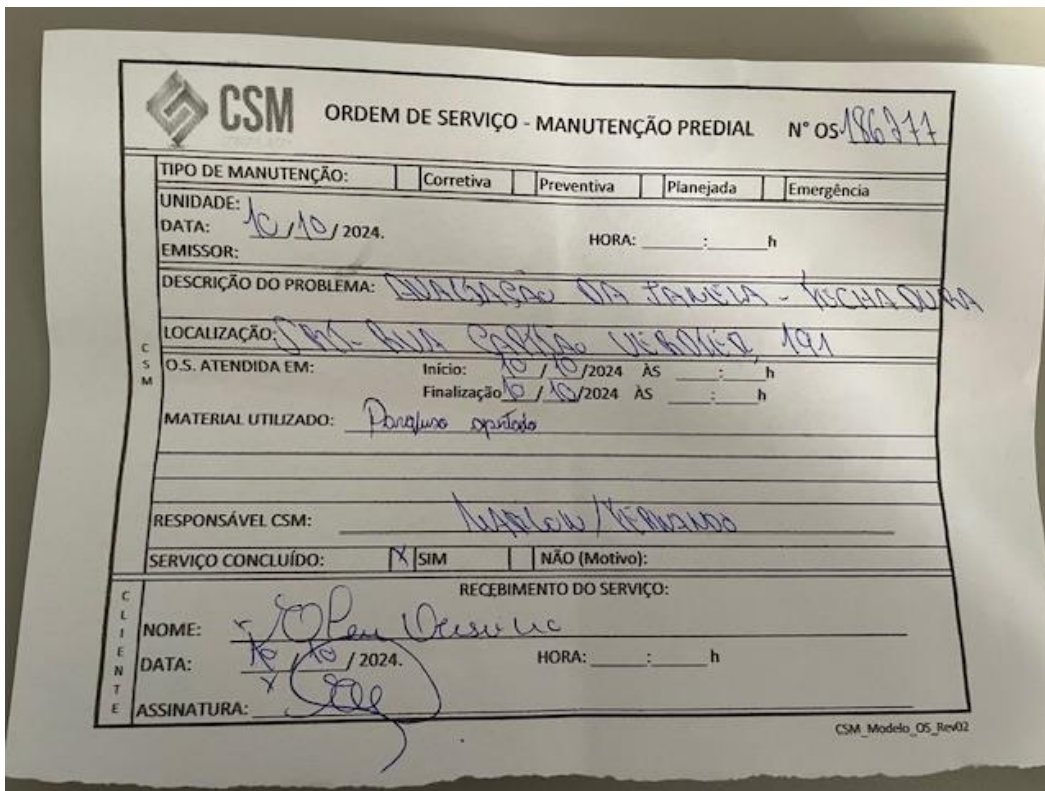 CSM ORDEM DE SERVIÇO - MANUTENÇÃO PREDIAL N° OS 186277
TIPO DE MANUTENÇÃO: Corretiva Preventiva Planejada Emergência
UNIDADE:
DATA: 10/10/2024. HORA: ____:____h
EMISSOR:
DESCRIÇÃO DO PROBLEMA: AVALIAÇÃO DA JANELA - FECHADURA
LOCALIZAÇÃO: RUA CAPITÃO 191
CSM
O.S. ATENDIDA EM: Início: 10/10/2024 ÀS ____:____h
Finalização 10/10/2024 ÀS ____:____h
MATERIAL UTILIZADO: Parafuso apertado
RESPONSÁVEL CSM: MARLON/FERNANDO
SERVIÇO CONCLUÍDO: X SIM NÃO (Motivo):
CLIENTE
RECEBIMENTO DO SERVIÇO:
NOME: x
DATA: 10/10/2024. HORA: ____:____h
ASSINATURA: x
CSM_Modelo_OS_Rev02